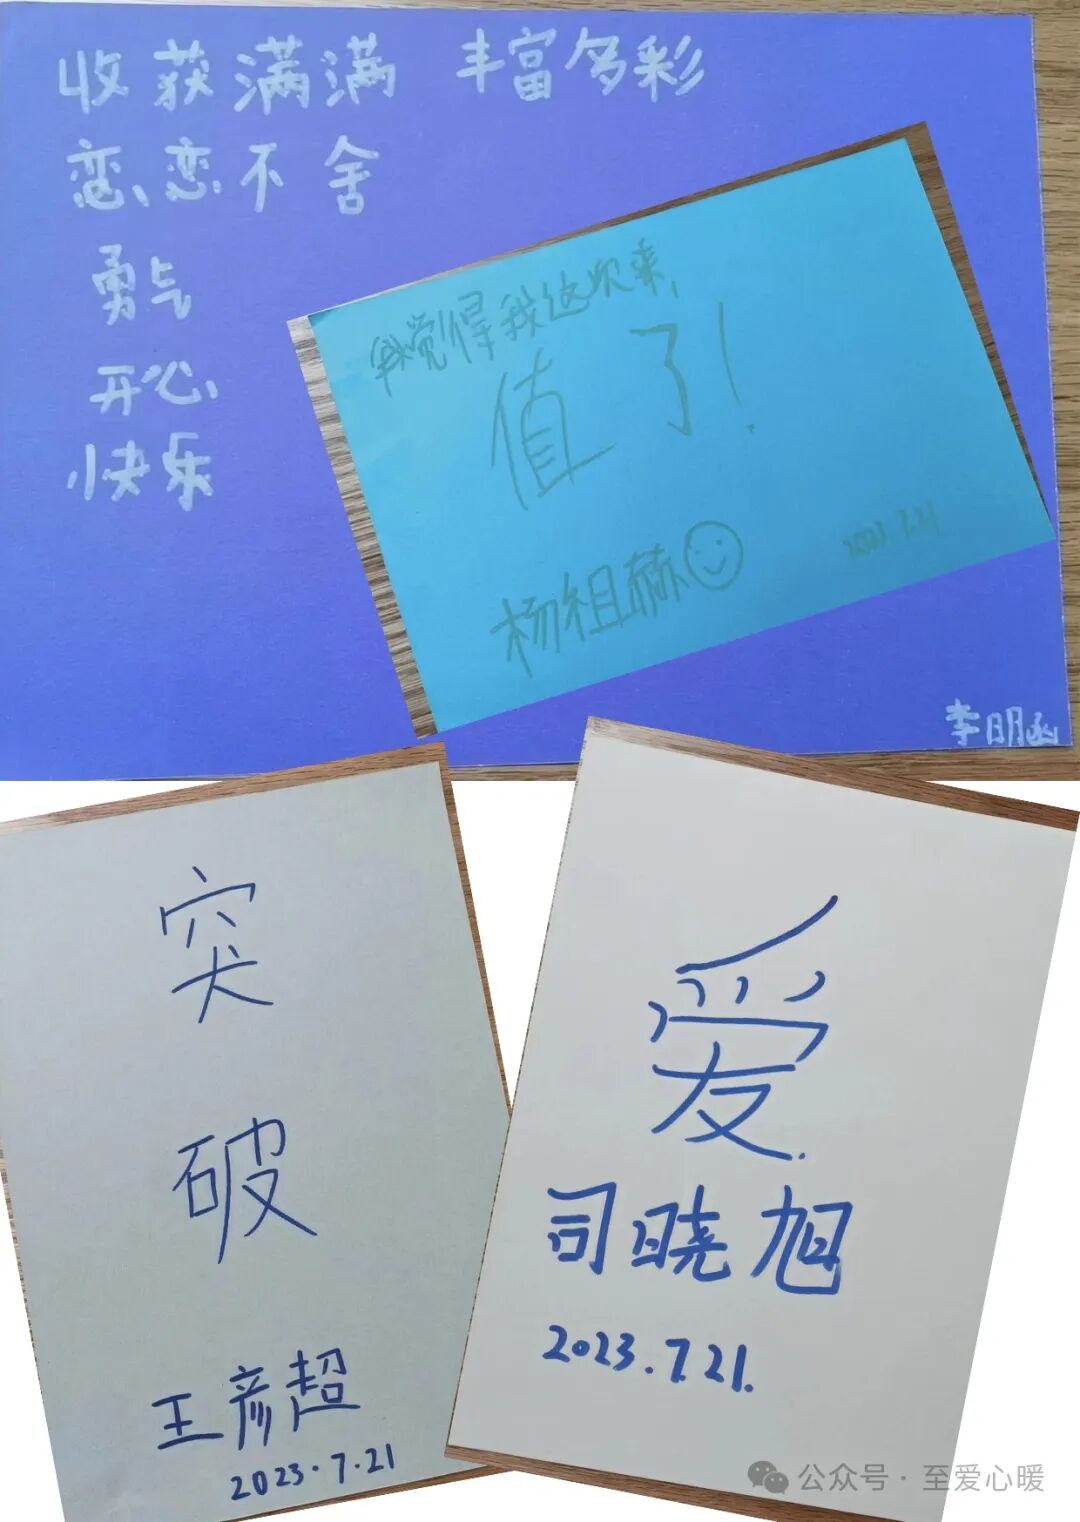 收获满满 丰富多彩
恋恋不舍
勇气
开心
快乐
李明函
我觉得我这次来,
值了!
杨祖赫
2023.7.21
突
破
王彦超
2023.7.21
爱
司晓旭
2023.7.21.
公众号·至爱心暖